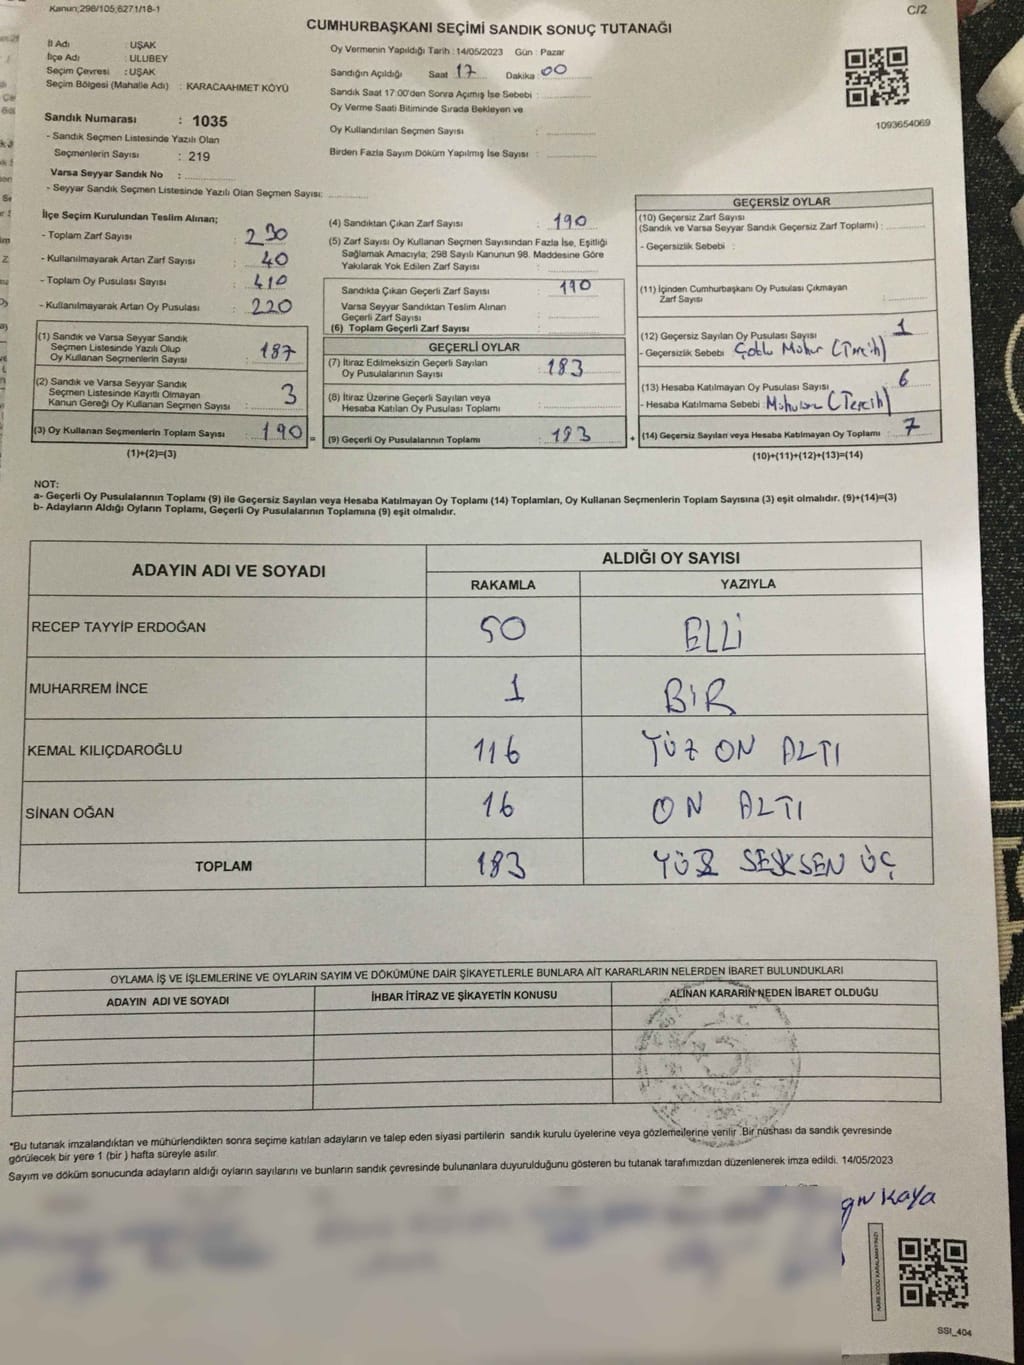 Kanun;298/105,6271/18-1
C/2
CUMHURBAŞKANI SEÇİMİ SANDIK SONUÇ TUTANAĞI
İl Adı : UŞAK
İlçe Adı : ULUBEY
Seçim Çevresi : UŞAK
Seçim Bölgesi (Mahalle Adı) : KARACAAHMET KÖYÜ
Sandık Numarası : 1035
- Sandık Seçmen Listesinde Yazılı Olan
Seçmenlerin Sayısı : 219
Varsa Seyyar Sandık No :
- Seyyar Sandık Seçmen Listesinde Yazılı Olan Seçmen Sayısı:
Oy Vermenin Yapıldığı Tarih : 14/05/2023 Gün : Pazar
Sandığın Açıldığı Saat 17 Dakika 00
Sandık Saat 17:00'den Sonra Açımış İse Sebebi :
Oy Verme Saati Bitiminde Sırada Bekleyen ve
Oy Kullandırılan Seçmen Sayısı :
Birden Fazla Sayım Döküm Yapılmış İse Sayısı :
1093654069
İlçe Seçim Kurulundan Teslim Alınan;
- Toplam Zarf Sayısı : 230
- Kullanılmayarak Artan Zarf Sayısı : 40
- Toplam Oy Pusulası Sayısı : 410
- Kullanılmayarak Artan Oy Pusulası : 220
(1) Sandık ve Varsa Seyyar Sandık
Seçmen Listesinde Yazılı Olup
Oy Kullanan Seçmenlerin Sayısı : 187
(2) Sandık ve Varsa Seyyar Sandık
Seçmen Listesinde Kayıtlı Olmayan
Kanun Gereği Oy Kullanan Seçmen Sayısı : 3
(3) Oy Kullanan Seçmenlerin Toplam Sayısı : 190 =
(1)+(2)=(3)
(4) Sandıktan Çıkan Zarf Sayısı : 190
(5) Zarf Sayısı Oy Kullanan Seçmen Sayısından Fazla İse, Eşitliği
Sağlamak Amacıyla; 298 Sayılı Kanunun 98. Maddesine Göre
Yakılarak Yok Edilen Zarf Sayısı :
Sandıkta Çıkan Geçerli Zarf Sayısı : 190
Varsa Seyyar Sandıktan Teslim Alınan
Geçerli Zarf Sayısı :
(6) Toplam Geçerli Zarf Sayısı :
GEÇERLİ OYLAR
(7) İtiraz Edilmeksizin Geçerli Sayılan
Oy Pusulalarının Sayısı : 183
(8) İtiraz Üzerine Geçerli Sayılan veya
Hesaba Katılan Oy Pusulası Toplamı :
(9) Geçerli Oy Pusulalarının Toplamı : 183 +
GEÇERSİZ OYLAR
(10) Geçersiz Zarf Sayısı
(Sandık ve Varsa Seyyar Sandık Geçersiz Zarf Toplamı) :
- Geçersizlik Sebebi :
(11) İçinden Cumhurbaşkanı Oy Pusulası Çıkmayan
Zarf Sayısı :
(12) Geçersiz Sayılan Oy Pusulası Sayısı : 1
- Geçersizlik Sebebi Çoklu Mühür (Tercih)
(13) Hesaba Katılmayan Oy Pusulası Sayısı : 6
- Hesaba Katılmama Sebebi : (Tercih)
(14) Geçersiz Sayılan veya Hesaba Katılmayan Oy Toplamı : 7
(10)+(11)+(12)+(13)=(14)
NOT:
a- Geçerli Oy Pusulalarının Toplamı (9) ile Geçersiz Sayılan veya Hesaba Katılmayan Oy Toplamı (14) Toplamları, Oy Kullanan Seçmenlerin Toplam Sayısına (3) eşit olmalıdır. (9)+(14)=(3)
b- Adayların Aldığı Oyların Toplamı, Geçerli Oy Pusulalarının Toplamına (9) eşit olmalıdır.
ADAYIN ADI VE SOYADI
ALDIĞI OY SAYISI
RAKAMLA YAZIYLA
RECEP TAYYİP ERDOĞAN 50 ELLİ
MUHARREM İNCE 1 BİR
KEMAL KILIÇDAROĞLU 116 YÜZ ON ALTI
SİNAN OĞAN 16 ON ALTI
TOPLAM 183 YÜZ SEKSEN ÜÇ
OYLAMA İŞ VE İŞLEMLERİNE VE OYLARIN SAYIM VE DÖKÜMÜNE DAİR ŞİKAYETLERLE BUNLARA AİT KARARLARIN NELERDEN İBARET BULUNDUKLARI
ADAYIN ADI VE SOYADI İHBAR İTİRAZ VE ŞİKAYETİN KONUSU ALINAN KARARIN NEDEN İBARET OLDUĞU
*Bu tutanak imzalandıktan ve mühürlendikten sonra seçime katılan adayların ve talep eden siyasi partilerin sandık kurulu üyelerine veya gözlemcilerine verilir .Bir nüshası da sandık çevresinde
görülecek bir yere 1 (bir ) hafta süreyle asılır.
Sayım ve döküm sonucunda adayların aldığı oyların sayılarını ve bunların sandık çevresinde bulunanlara duyurulduğunu gösteren bu tutanak tarafımızdan düzenlenerek imza edildi. 14/05/2023
Kaya
KARE KODU KARALAMAYINIZ!
SSI_404